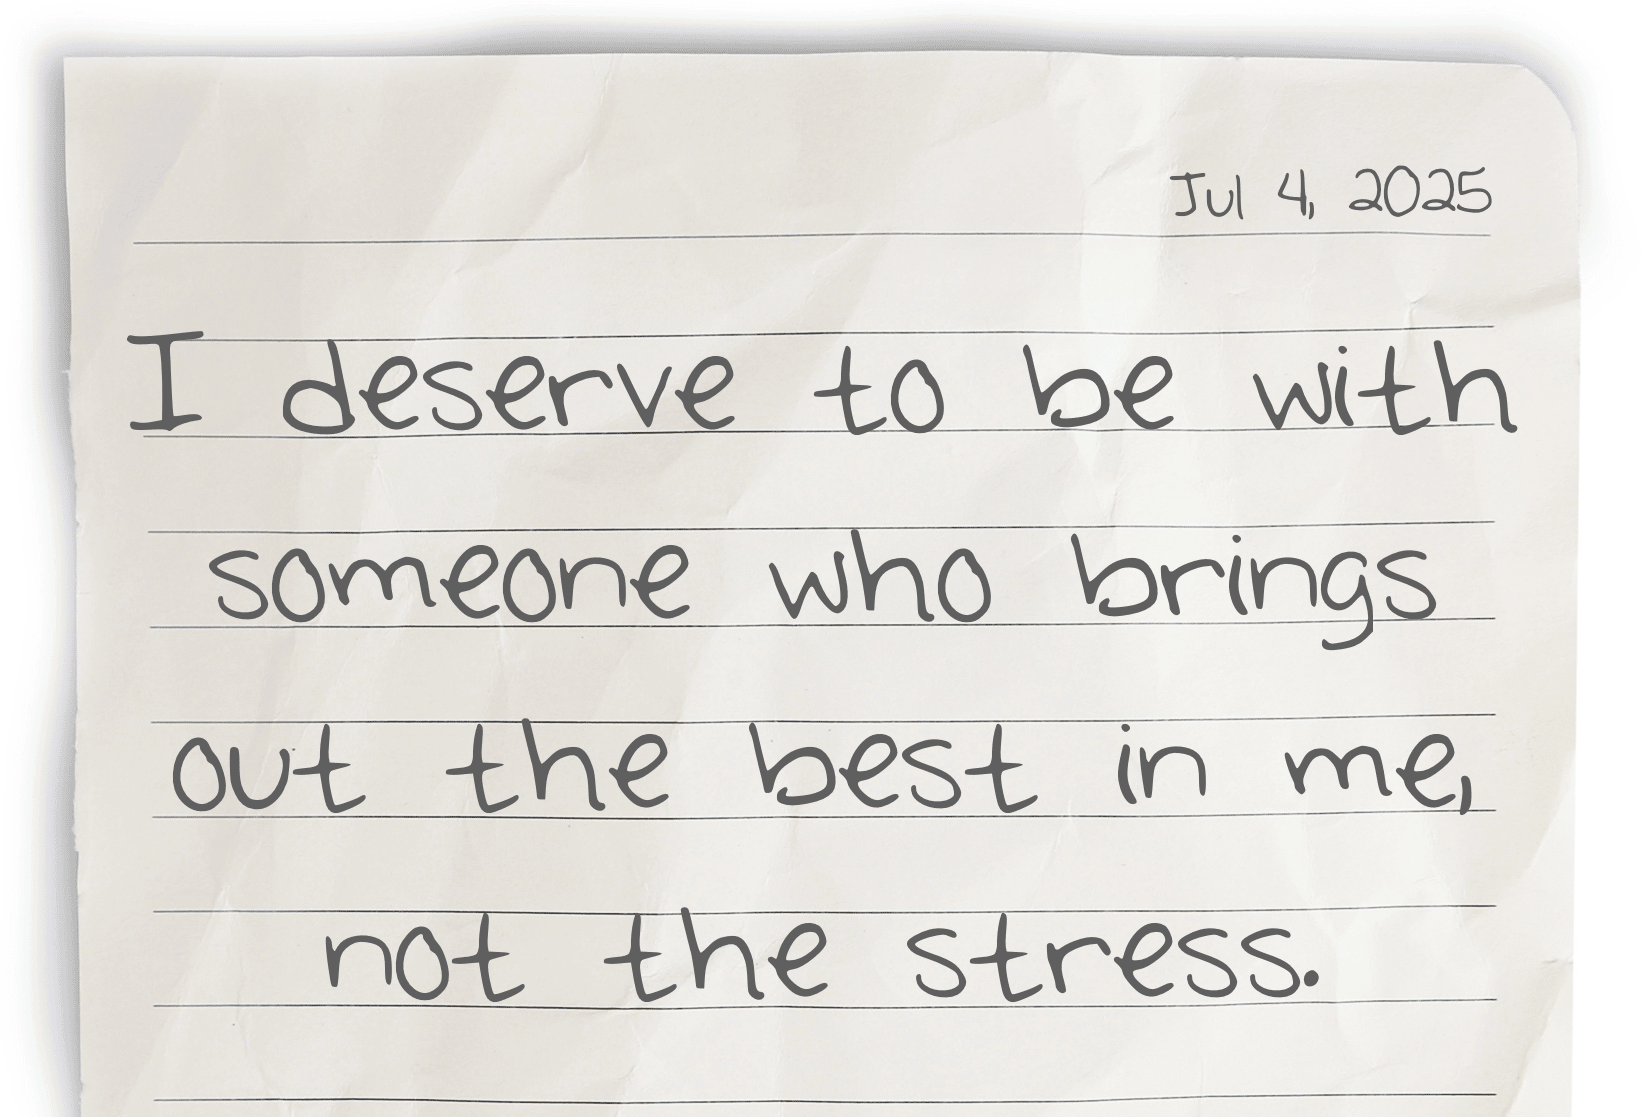 Jul 4, 2025
I deserve to be with
someone who brings
out the best in me,
not the stress.